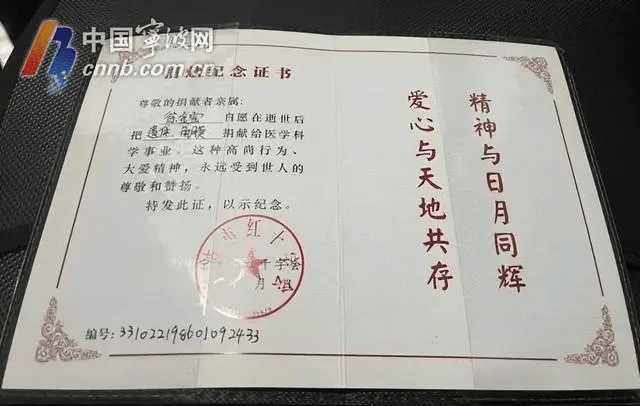 中国宁波网
cnnb.com.cn
捐献纪念证书
尊敬的捐献者亲属:
自愿在逝世后
把 遗体 角膜 捐献给医学科
学事业。这种高尚行为、
大爱精神,永远受到世人的
尊敬和赞扬。
特发此证,以示纪念。
市红十
十字会
月
编号:331022198601092433
精神与日月同辉
爱心与天地共存